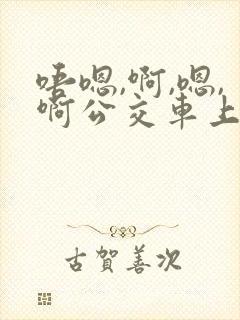 唔嗯,啊,嗯,
啊公交車上
古賀善次